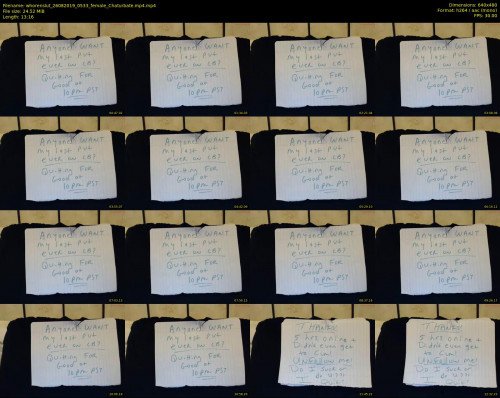 File size: 24.52 MiB
Length: 13:16
Dimensions: 640x480
Format: h264 / aac (mono)
FPS: 30.00
Anyone WANT
my last PVT
ever on CB?
Quitting For
Good at
10pm PST
Anyone WANT
my last PVT
ever on CB?
Quitting For
Good at
10pm PST
Anyone WANT
my last PVT
ever on CB?
Quitting For
Good at
10pm PST
Anyone WANT
my last PVT
ever on CB?
Quitting For
Good at
10pm PST
Anyone WANT
my last PVT
ever on CB?
Quitting For
Good at
10pm PST
Anyone WANT
my last PVT
ever on CB?
Quitting For
Good at
10pm PST
Anyone WANT
my last PVT
ever on CB?
Quitting For
Good at
10pm PST
Anyone WANT
my last PVT
ever on CB?
Quitting For
Good at
10pm PST
Anyone WANT
my last PVT
ever on CB?
Quitting For
Good at
10pm PST
Anyone WANT
my last PVT
ever on CB?
Quitting For
Good at
10pm PST
Anyone WANT
my last PVT
ever on CB?
Quitting For
Good at
10pm PST
Anyone WANT
my last PVT
ever on CB?
Quitting For
Good at
10pm PST
Anyone WANT
my last PVT
ever on CB?
Quitting For
Good at
10pm PST
Anyone WANT
my last PVT
ever on CB?
Quitting For
Good at
10pm PST
THANKS!
5 hrs online +
Didnt even get
to Cum!
UNFOLLOW me!
Do I suck or
THANKS!
5 hrs online +
Didnt even get
to Cum!
UNFOLLOW me!
Do I suck or